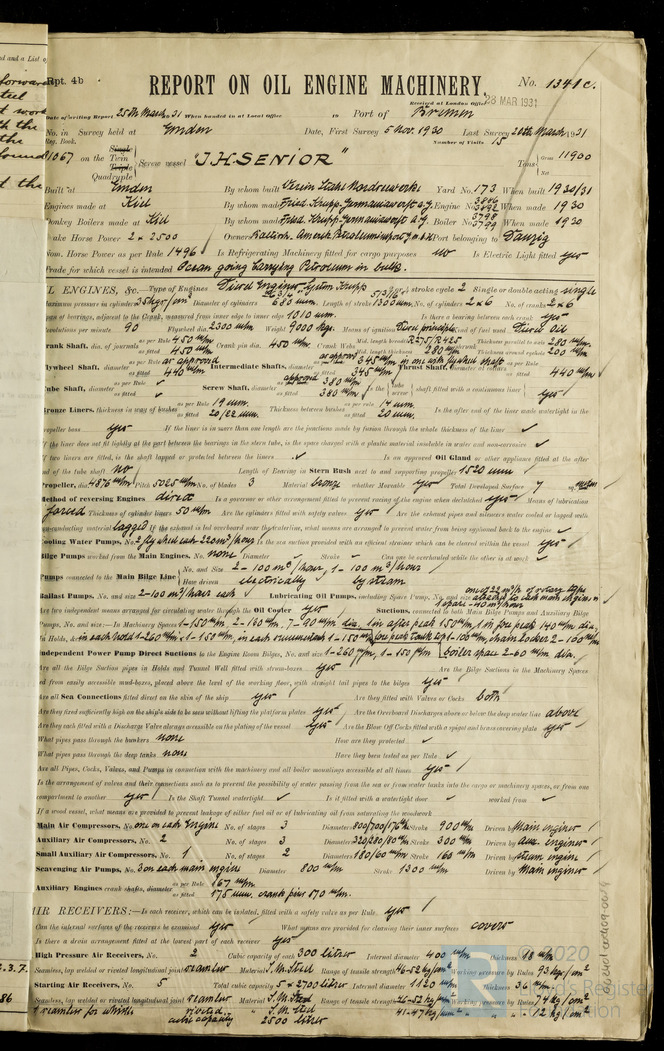 Rpt. 4b
REPORT ON OIL ENGINE MACHINERY.
No. 1341c.
Received at London Office 28 MAR 1931
Date of writing Report 25th March, 31 When handed in at Local Office Port of Bremen
No. in Survey held at Emden Date, First Survey 5 Nov. 1930 Last Survey 20th March, 1931
Reg. Book. Number of Visits 15
on the Single Twin Triple Quadruple Screw vessel "J.H. SENIOR" Tons Gross 11900 Net
Built at Emden By whom built Yard No. 173 When built 1930/31
Engines made at Kiel By whom made Fried. Krupp Germaniawerft a.g. Engine No. 3886 3892 When made 1930
Donkey Boilers made at Kiel By whom made Fried. Krupp Germaniawerft a.g. Boiler No. 3798 3799 When made 1930
Brake Horse Power 2 x 2500 Owners Port belonging to Danzig
Nom. Horse Power as per Rule 1496 Is Refrigerating Machinery fitted for cargo purposes no Is Electric Light fitted yes
Trade for which vessel is intended Ocean going Carrying Petroleum in bulk.
OIL ENGINES, &c. Type of Engines Diesel Engines System Krupp 2 stroke cycle 2 Single or double acting single
Maximum pressure in cylinders 35 kg/cm² Diameter of cylinders 680 mm. Length of stroke 1300 mm. No. of cylinders 2 x 6 No. of cranks 2 x 6
Span of bearings, adjacent to the Crank, measured from inner edge to inner edge 1010 mm. Is there a bearing between each crank yes
Revolutions per minute 90 Flywheel dia. 2300 mm. Weight 9000 kgs. Means of ignition Diesel principle Kind of fuel used Diesel oil
Crank Shaft, dia. of journals as per Rule 450 mm. as fitted 450 mm. Crank pin dia. 450 mm. Crank Webs Mid. length breadth Mid. length thickness 280 mm. Thickness parallel to axis 280 mm. Thickness around eyehole 200 mm.
Flywheel Shaft, diameter as per Rule as approved as fitted 440 mm. Intermediate Shafts, diameter as per Rule as approved as fitted 345 mm. Thrust Shaft, diameter at collars as per Rule as fitted 440 mm.
Tube Shaft, diameter as per Rule as fitted Screw Shaft, diameter as per Rule approved 380 mm. as fitted 380 mm. Is the tube screw shaft fitted with a continuous liner yes
Bronze Liners, thickness in way of bushes as per Rule 19 mm. as fitted 20/22 mm. Thickness between bushes as per rule 14 mm. as fitted 20 mm. Is the after end of the liner made watertight in the
propeller boss yes If the liner is in more than one length are the junctions made by fusion through the whole thickness of the liner ✓
If the liner does not fit tightly at the part between the bearings in the stern tube, is the space charged with a plastic material insoluble in water and non-corrosive ✓
If two liners are fitted, is the shaft lapped or protected between the liners ✓ Is an approved Oil Gland or other appliance fitted at the after
end of the tube shaft no Length of Bearing in Stern Bush next to and supporting propeller 1520 mm ✓
Propeller, dia. 4876 mm Pitch 5025 mm No. of blades 3 Material bronze whether Moveable yes Total Developed Surface 7
Method of reversing Engines direct Is a governor or other arrangement fitted to prevent racing of the engine when declutched yes Means of lubrication
forced Thickness of cylinder liners 50 mm. Are the cylinders fitted with safety valves yes Are the exhaust pipes and silencers water cooled or lagged with
non-conducting material lagged If the exhaust is led overboard near the waterline, what means are arranged to prevent water from being syphoned back to the engine ✓
Cooling Water Pumps, No. Is the sea suction provided with an efficient strainer which can be cleared within the vessel yes
Bilge Pumps worked from the Main Engines, No. none Diameter ✓ Stroke ✓ Can one be overhauled while the other is at work ✓
Pumps connected to the Main Bilge Line No. and Size 2 - 100 m³/hour, 1 - 100 m³/hour
How driven electrically by steam
Ballast Pumps, No. and size 2 - 100 m³/hour each Lubricating Oil Pumps, including Spare Pump, No. and size 1 spare - 40 m³/hour
Are two independent means arranged for circulating water through the Oil Cooler yes Suctions, connected to both Main Bilge Pumps and Auxiliary Bilge
Pumps, No. and size:—In Machinery Spaces 1-150 mm, 2-180 mm, 7-90 mm dia. 1 in after peak 150 mm, 1 in fore peak 140 mm dia.,
In Holds, &c. chain locker
Independent Power Pump Direct Suctions to the Engine Room Bilges, No. and size 1-260 mm, 1-150 mm, boiler space 2-60 mm dia.
Are all the Bilge Suction pipes in Holds and Tunnel Well fitted with strum-boxes yes Are the Bilge Suctions in the Machinery Spaces
led from easily accessible mud-boxes, placed above the level of the working floor, with straight tail pipes to the bilges yes
Are all Sea Connections fitted direct on the skin of the ship yes Are they fitted with Valves or Cocks both
Are they fixed sufficiently high on the ship's side to be seen without lifting the platform plates yes Are the Overboard Discharges above or below the deep water line above
Are they each fitted with a Discharge Valve always accessible on the plating of the vessel yes Are the Blow Off Cocks fitted with a spigot and brass covering plate yes
What pipes pass through the bunkers none How are they protected ✓
What pipes pass through the deep tanks none Have they been tested as per Rule ✓
Are all Pipes, Cocks, Valves, and Pumps in connection with the machinery and all boiler mountings accessible at all times yes
Is the arrangement of valves and their connections such as to prevent the possibility of water passing from the sea or from water tanks into the cargo or machinery spaces, or from one
compartment to another yes Is the Shaft Tunnel watertight ✓ Is it fitted with a watertight door ✓ worked from ✓
If a wood vessel, what means are provided to prevent leakage of either fuel oil or of lubricating oil from saturating the woodwork
Main Air Compressors, No. one on each Engine No. of stages 3 Diameters Stroke 900 mm. Driven by Main engines
Auxiliary Air Compressors, No. 2 No. of stages 3 Diameters 320/280/80 mm Stroke 300 mm. Driven by Aux. engines
Small Auxiliary Air Compressors, No. 1 No. of stages 2 Diameters 180/60 mm. Stroke 160 mm Driven by steam engine
Scavenging Air Pumps, No. 3 on each main engine Diameter 800 mm. Stroke 1300 mm. Driven by Main engines
Auxiliary Engines crank shafts, diameter as per Rule 167 mm. as fitted 175 mm. crank pins 170 mm.
AIR RECEIVERS:—Is each receiver, which can be isolated, fitted with a safety valve as per Rule. yes
Can the internal surfaces of the receivers be examined yes What means are provided for cleaning their inner surfaces covers
Is there a drain arrangement fitted at the lowest part of each receiver yes
High Pressure Air Receivers, No. 2 Cubic capacity of each 300 litres Internal diameter 400 mm Thickness 18 mm
Seamless, lap welded or riveted longitudinal joint seamless Material S.M. Steel Range of tensile strength 46-52 kg/mm² Working pressure by Rules 93 kgs/cm²
Starting Air Receivers, No. 5 Total cubic capacity 5 x 2700 litres Internal diameter 1120 mm Thickness 36 mm
Seamless, lap welded or riveted longitudinal joint seamless Material S.M. Steel Range of tensile strength 46-52 kg/mm² Working pressure by Rules 74 kg/cm²
1 receiver for whistle riveted " S.M. Steel 41-47 kg/mm² " 12 kg/cm²
cubic capacity 2500 litres
© 2020
Lloyd's Register
Foundation